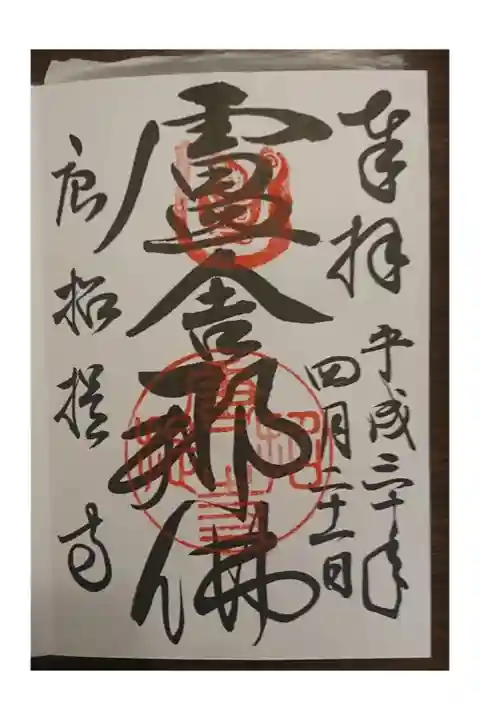 奉拝
平成三十年
四月二十一日
盧舎那佛
唐招提寺
唐招提寺